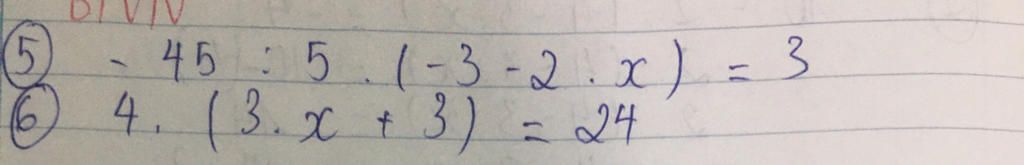 ⑤ - 45 : 5 . (-3 - 2 . x) = 3
⑥ 4 . (3 . x + 3) = 24